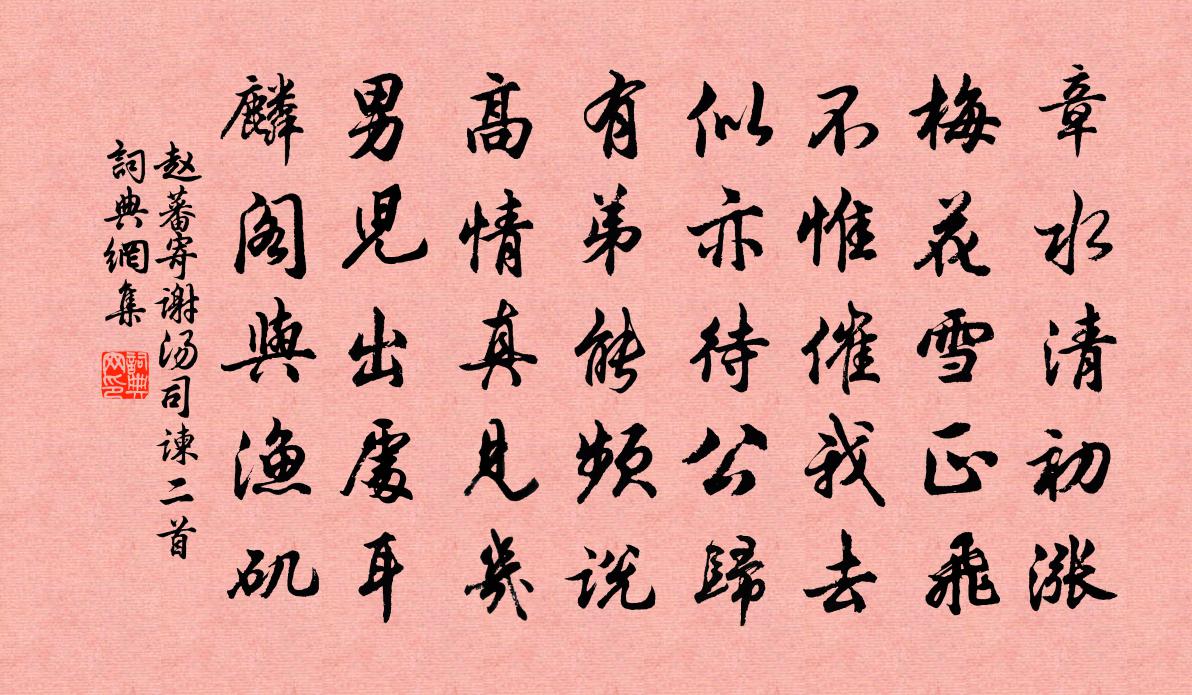 章水清初漲
梅花雪正飛
不惟催我去
似亦待公歸
有弟能頻說
高情真見幾
男兒出處耳
麟閣與漁矶
赵蕃寄谢汤司谏二首
詞典網集
詞典网印